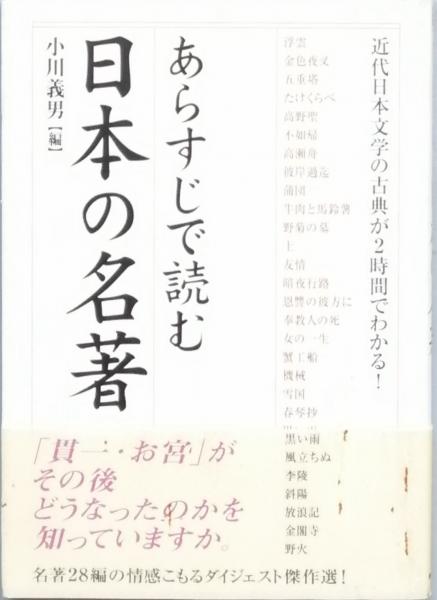 近代日本文学の古典が2時間でわかる!
浮雲
金色夜叉
五重塔
たけくらべ
高野聖
不如帰
高瀬舟
彼岸過迄
蒲団
牛肉と馬鈴薯
野菊の墓
土
友情
暗夜行路
恩讐の彼方に
奉教人の死
女の一生
蟹工船
機械
雪国
春琴抄
黒い雨
風立ちぬ
李陵
斜陽
放浪記
金閣寺
野火
あらすじで読む
日本の名著
小川義男【編】
「貫一・お宮」が
その後
どうなったのかを
知っていますか。
名著28編の情感こもるダイジェスト傑作選!